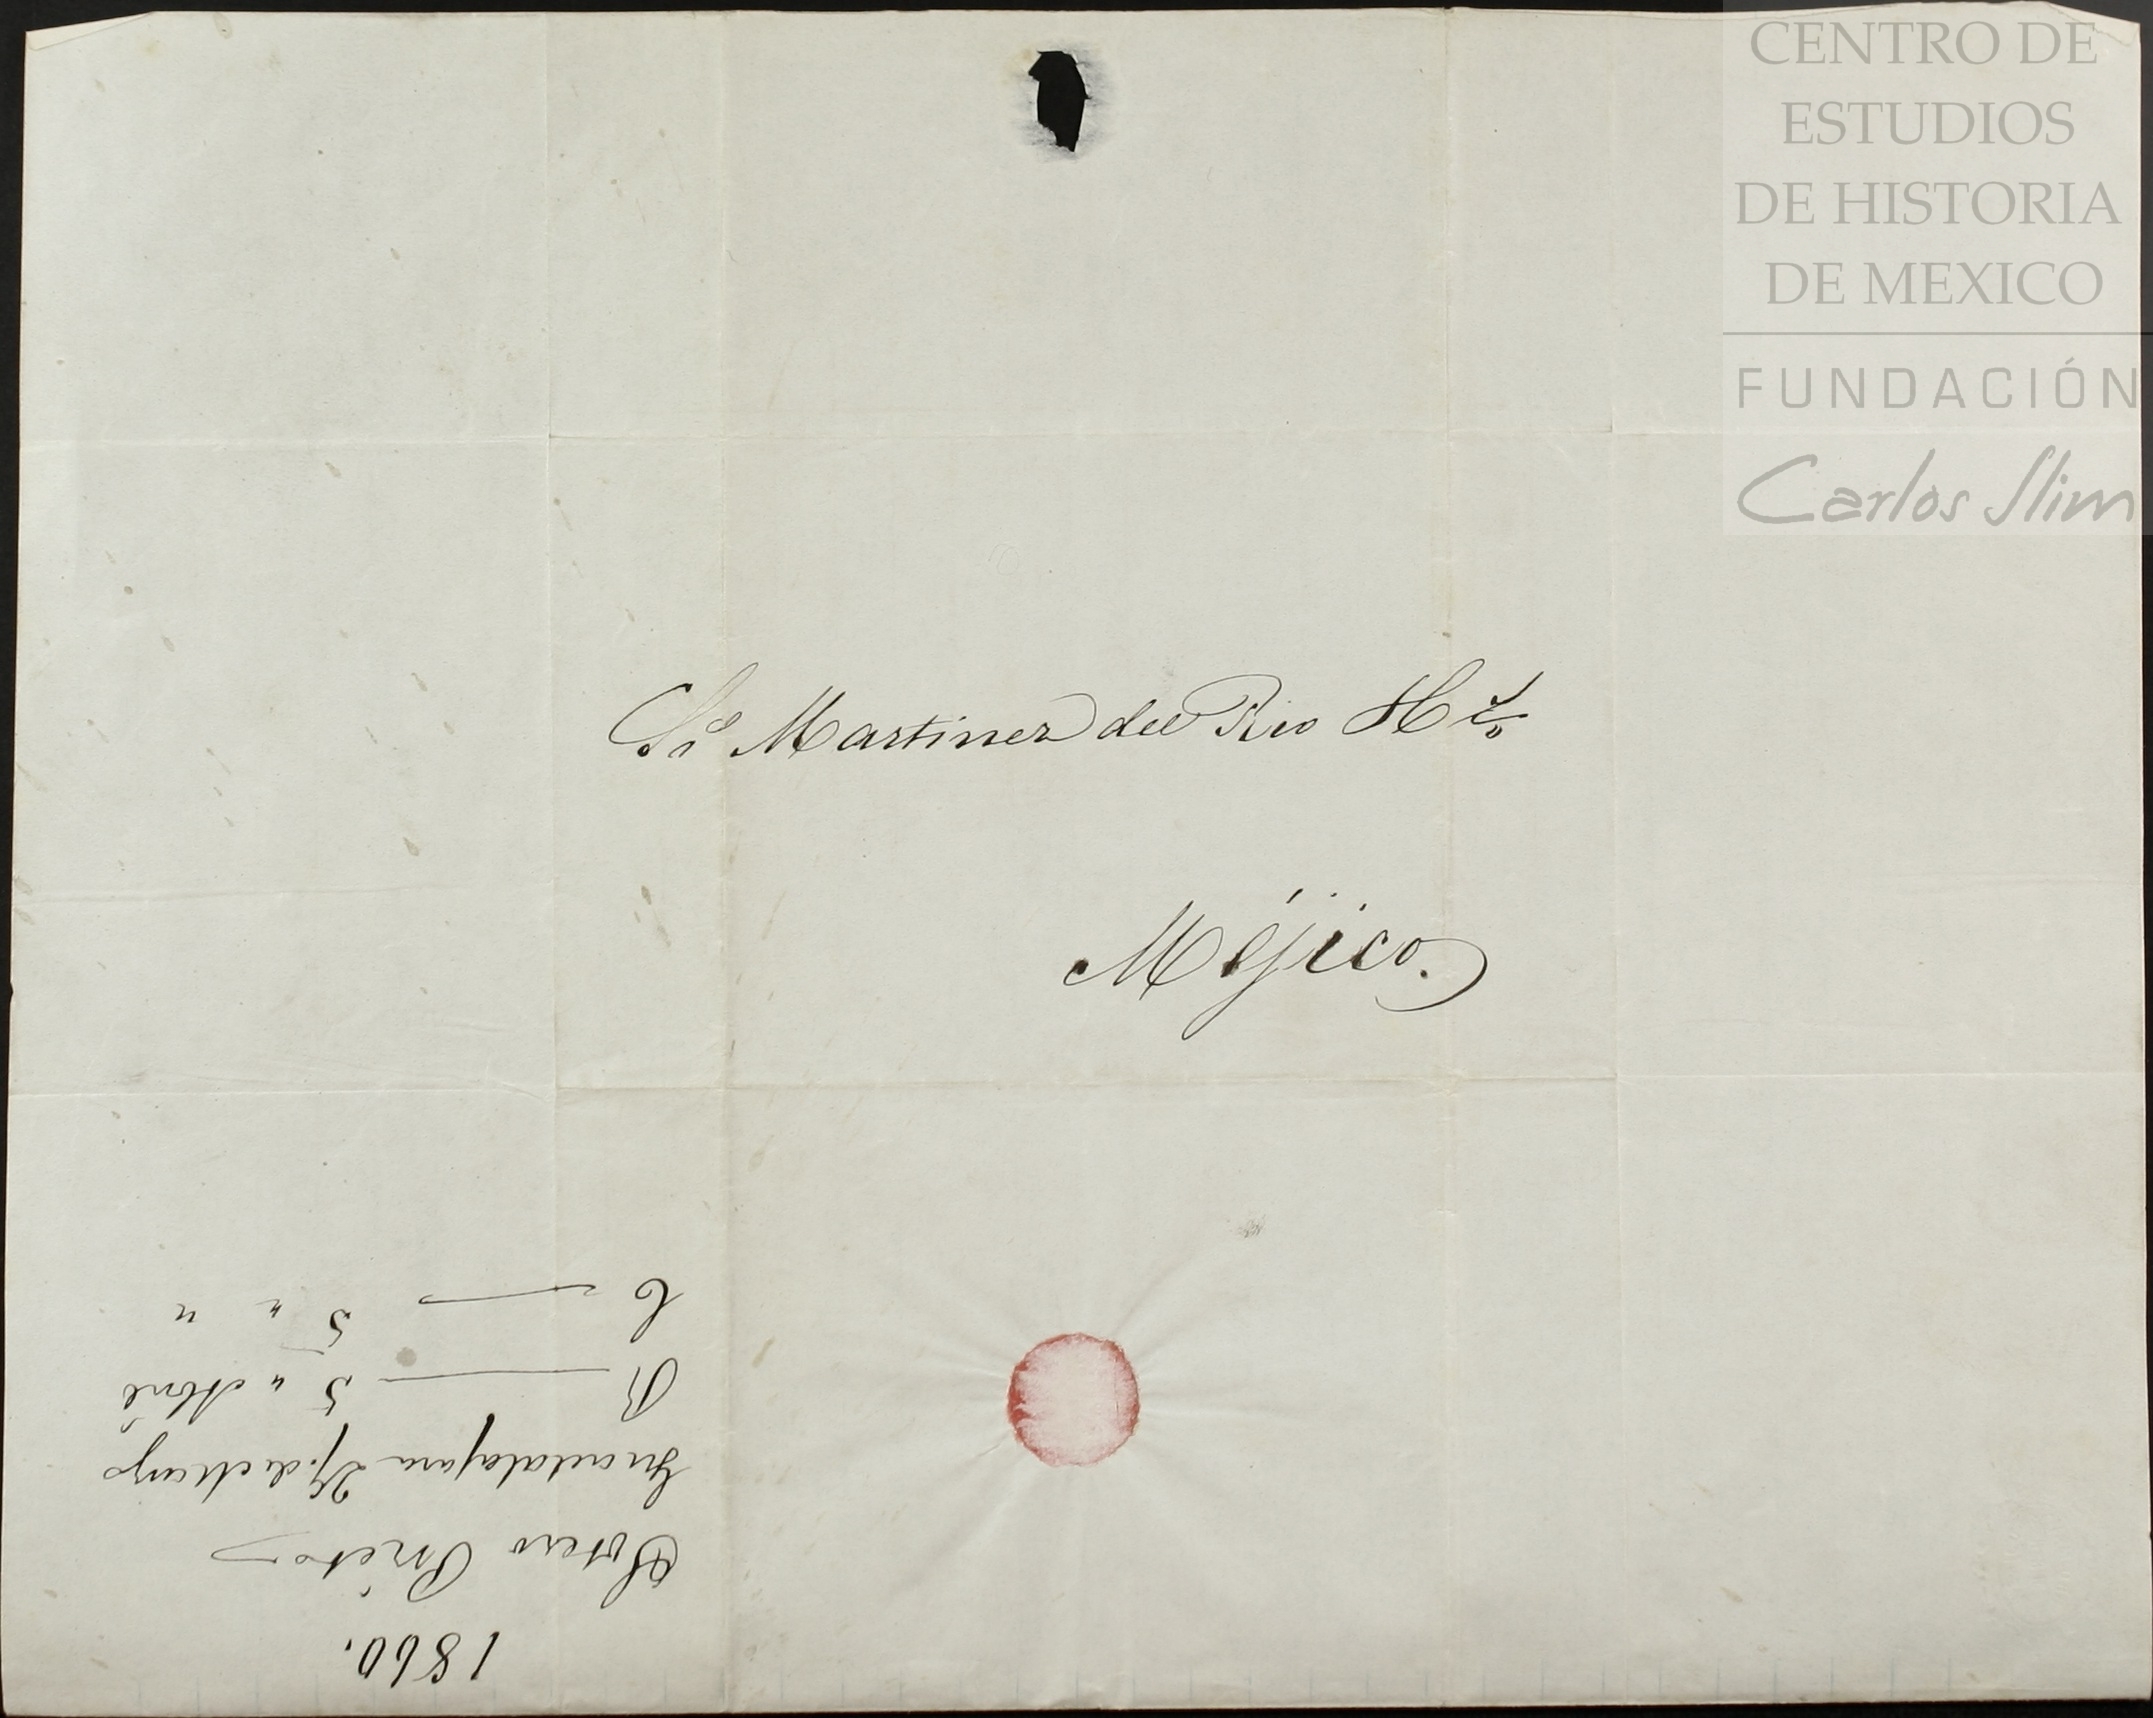 CENTRO DE
ESTUDIOS
DE HISTORIA
DE MEXICO
FUNDACIÓN
Carlos Slim
Martinez del Rio
Méjico.
1860.
Sotero Prieto
Guadalajara 27 de Marzo
R 5 " Abril
C 5 " "